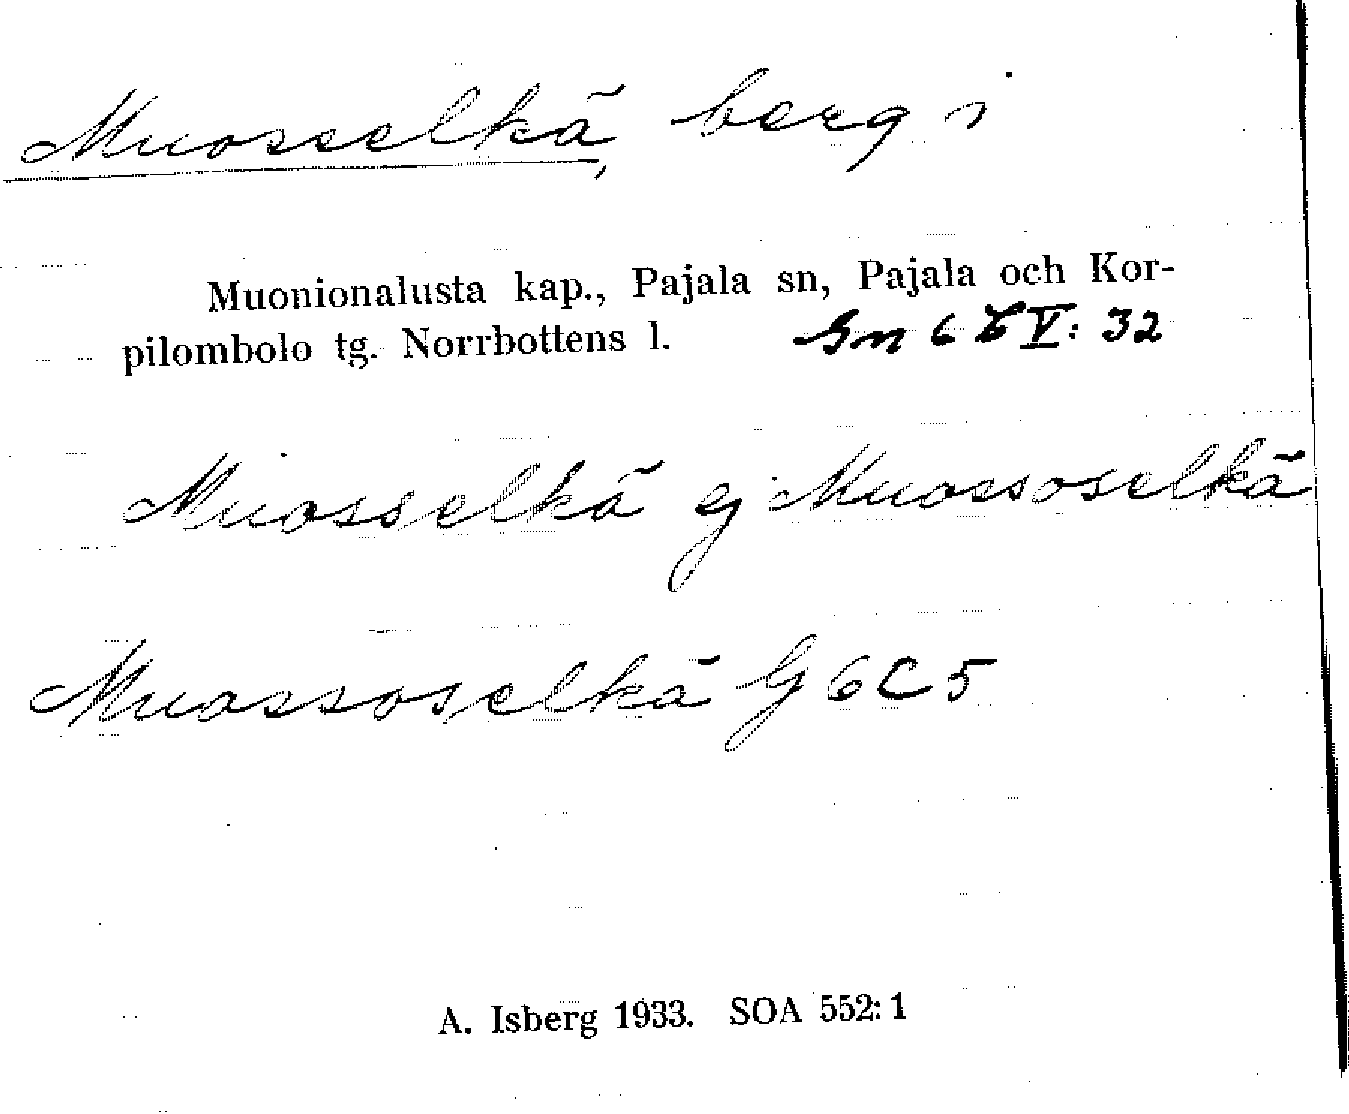 Muosselkä, berg i
Muonionalusta kap., Pajala sn, Pajala och Kor-
pilombolo tg. Norrbottens l. Gn 6 b V: 32
Muosselkä ej Muossoselkä
Muossoselkä G 6 C 5
A. Isberg 1933. SOA 552:1